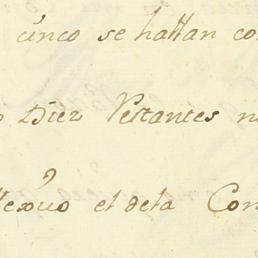 cinco se hallan co
Diez Vestantes n
Mexico el dela Con